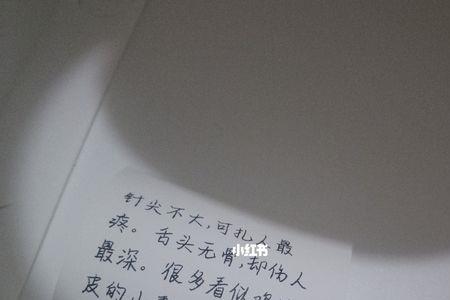 针尖不大,可扎人最
疼。舌头无骨,却伤人
小红书
最深。很多看似
皮的小